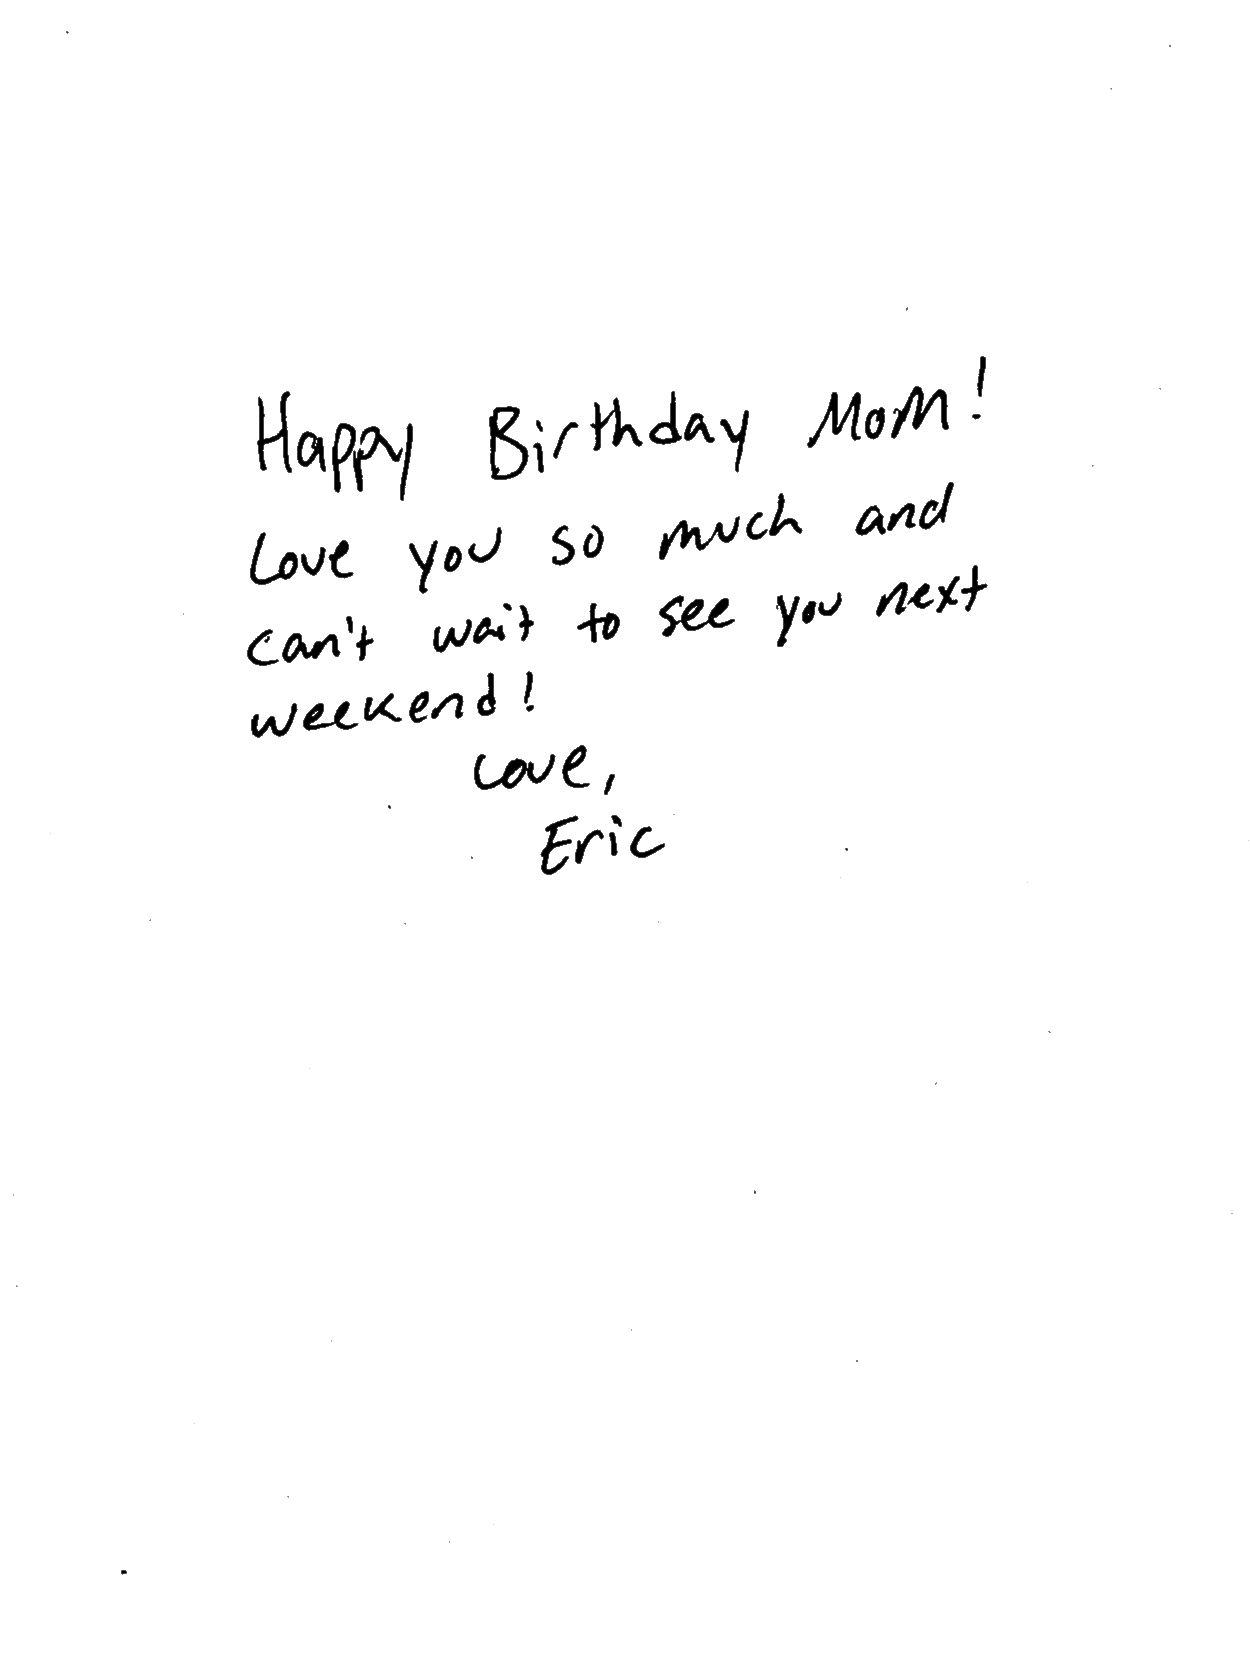 Happy Birthday Mom!
Love you so much and
can't wait to see you next
weekend!
Love,
Eric